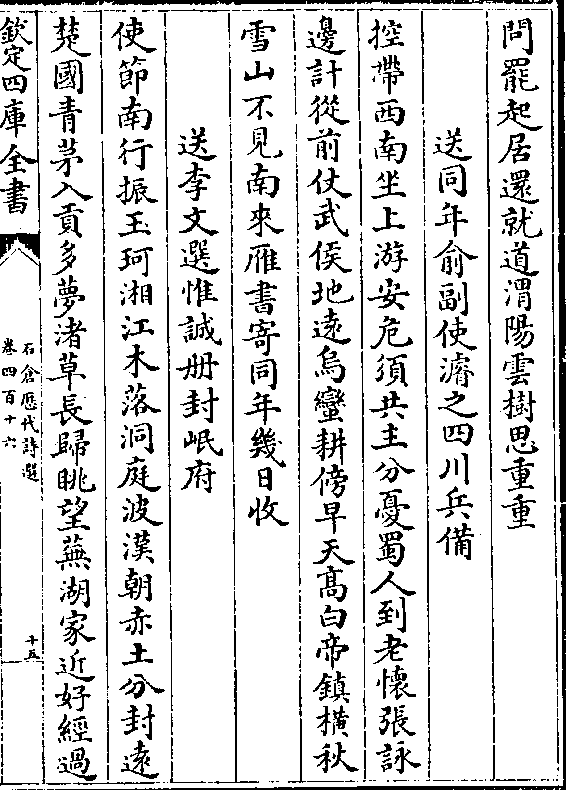 問罷起居還就道渭陽雲樹思重重
送同年俞副使濬之四川兵備
控帶西南坐上游安危須共主分憂蜀人到老懷張詠
邊計從前仗武侯地遠烏蠻耕傍早天髙白帝鎮橫秋
雪山不見南來雁書寄同年幾日收
送李文選惟誠册封岷府
使節南行振玉珂湘江木落洞庭波漢朝赤土分封遠
楚國青茅入貢多夢渚草長歸眺望蕪湖家近好經過
欽定四庫全書
石倉歷代詩選
卷四百十六
十五